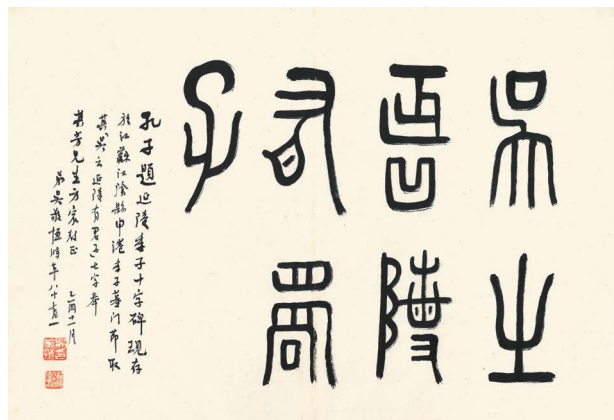 吳之
延陵
有君
子
孔子題延陵季子十字碑現存
於江蘇江陰縣申港季子墓門節取
其吳之延陵有君子七字奉
芳先生方家教正 乙酉十一月
弟吳敬恒時年八十有一